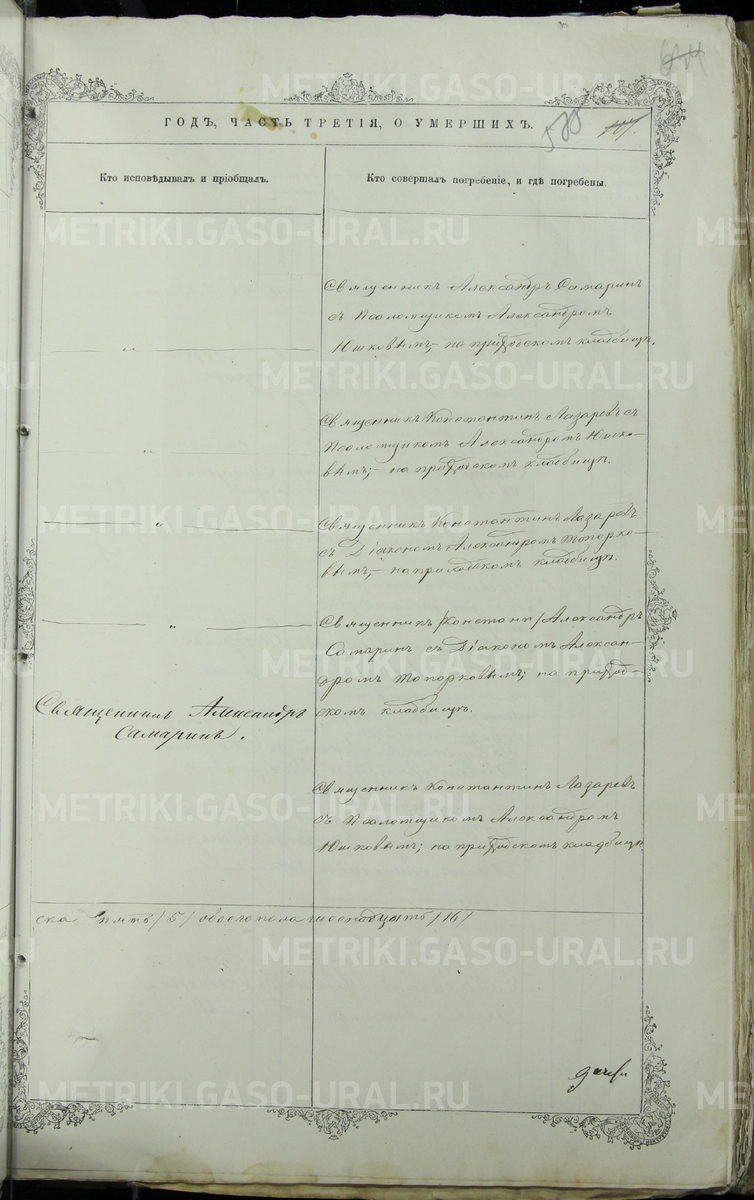 ГОДЪ, ЧАСТЬ ТРЕТІЯ, О УМЕРШИХЪ.
588
Кто исповѣдывалъ и пріобщалъ.
Кто совершалъ погребеніе, и гдѣ погребены.
Священникъ Александръ Самаринъ
съ Псаломщикомъ Александромъ
Юшковымъ; на приходскомъ кладбищѣ.
Священникъ Константинъ Лазаревъ съ
Псаломщикомъ Александромъ Юшко-
вымъ; на приходскомъ кладбищѣ.
Священникъ Константинъ Лазаревъ
съ Діакономъ Александромъ Топорко-
вымъ; на приходскомъ кладбищѣ.
Священникъ /Констант/ Александръ
Самаринъ съ Діакономъ Алексан-
дромъ Топорковымъ; на приход-
скомъ кладбищѣ.
Священникъ Александръ
Самаринъ.
Священникъ Константинъ Лазаревъ
съ Псаломщикомъ Александромъ
Юшковымъ; на приходскомъ кладбищѣ.
ска пять /5/ обоего пола шеснадцать /16/
METRIKI.GASO-URAL.RU